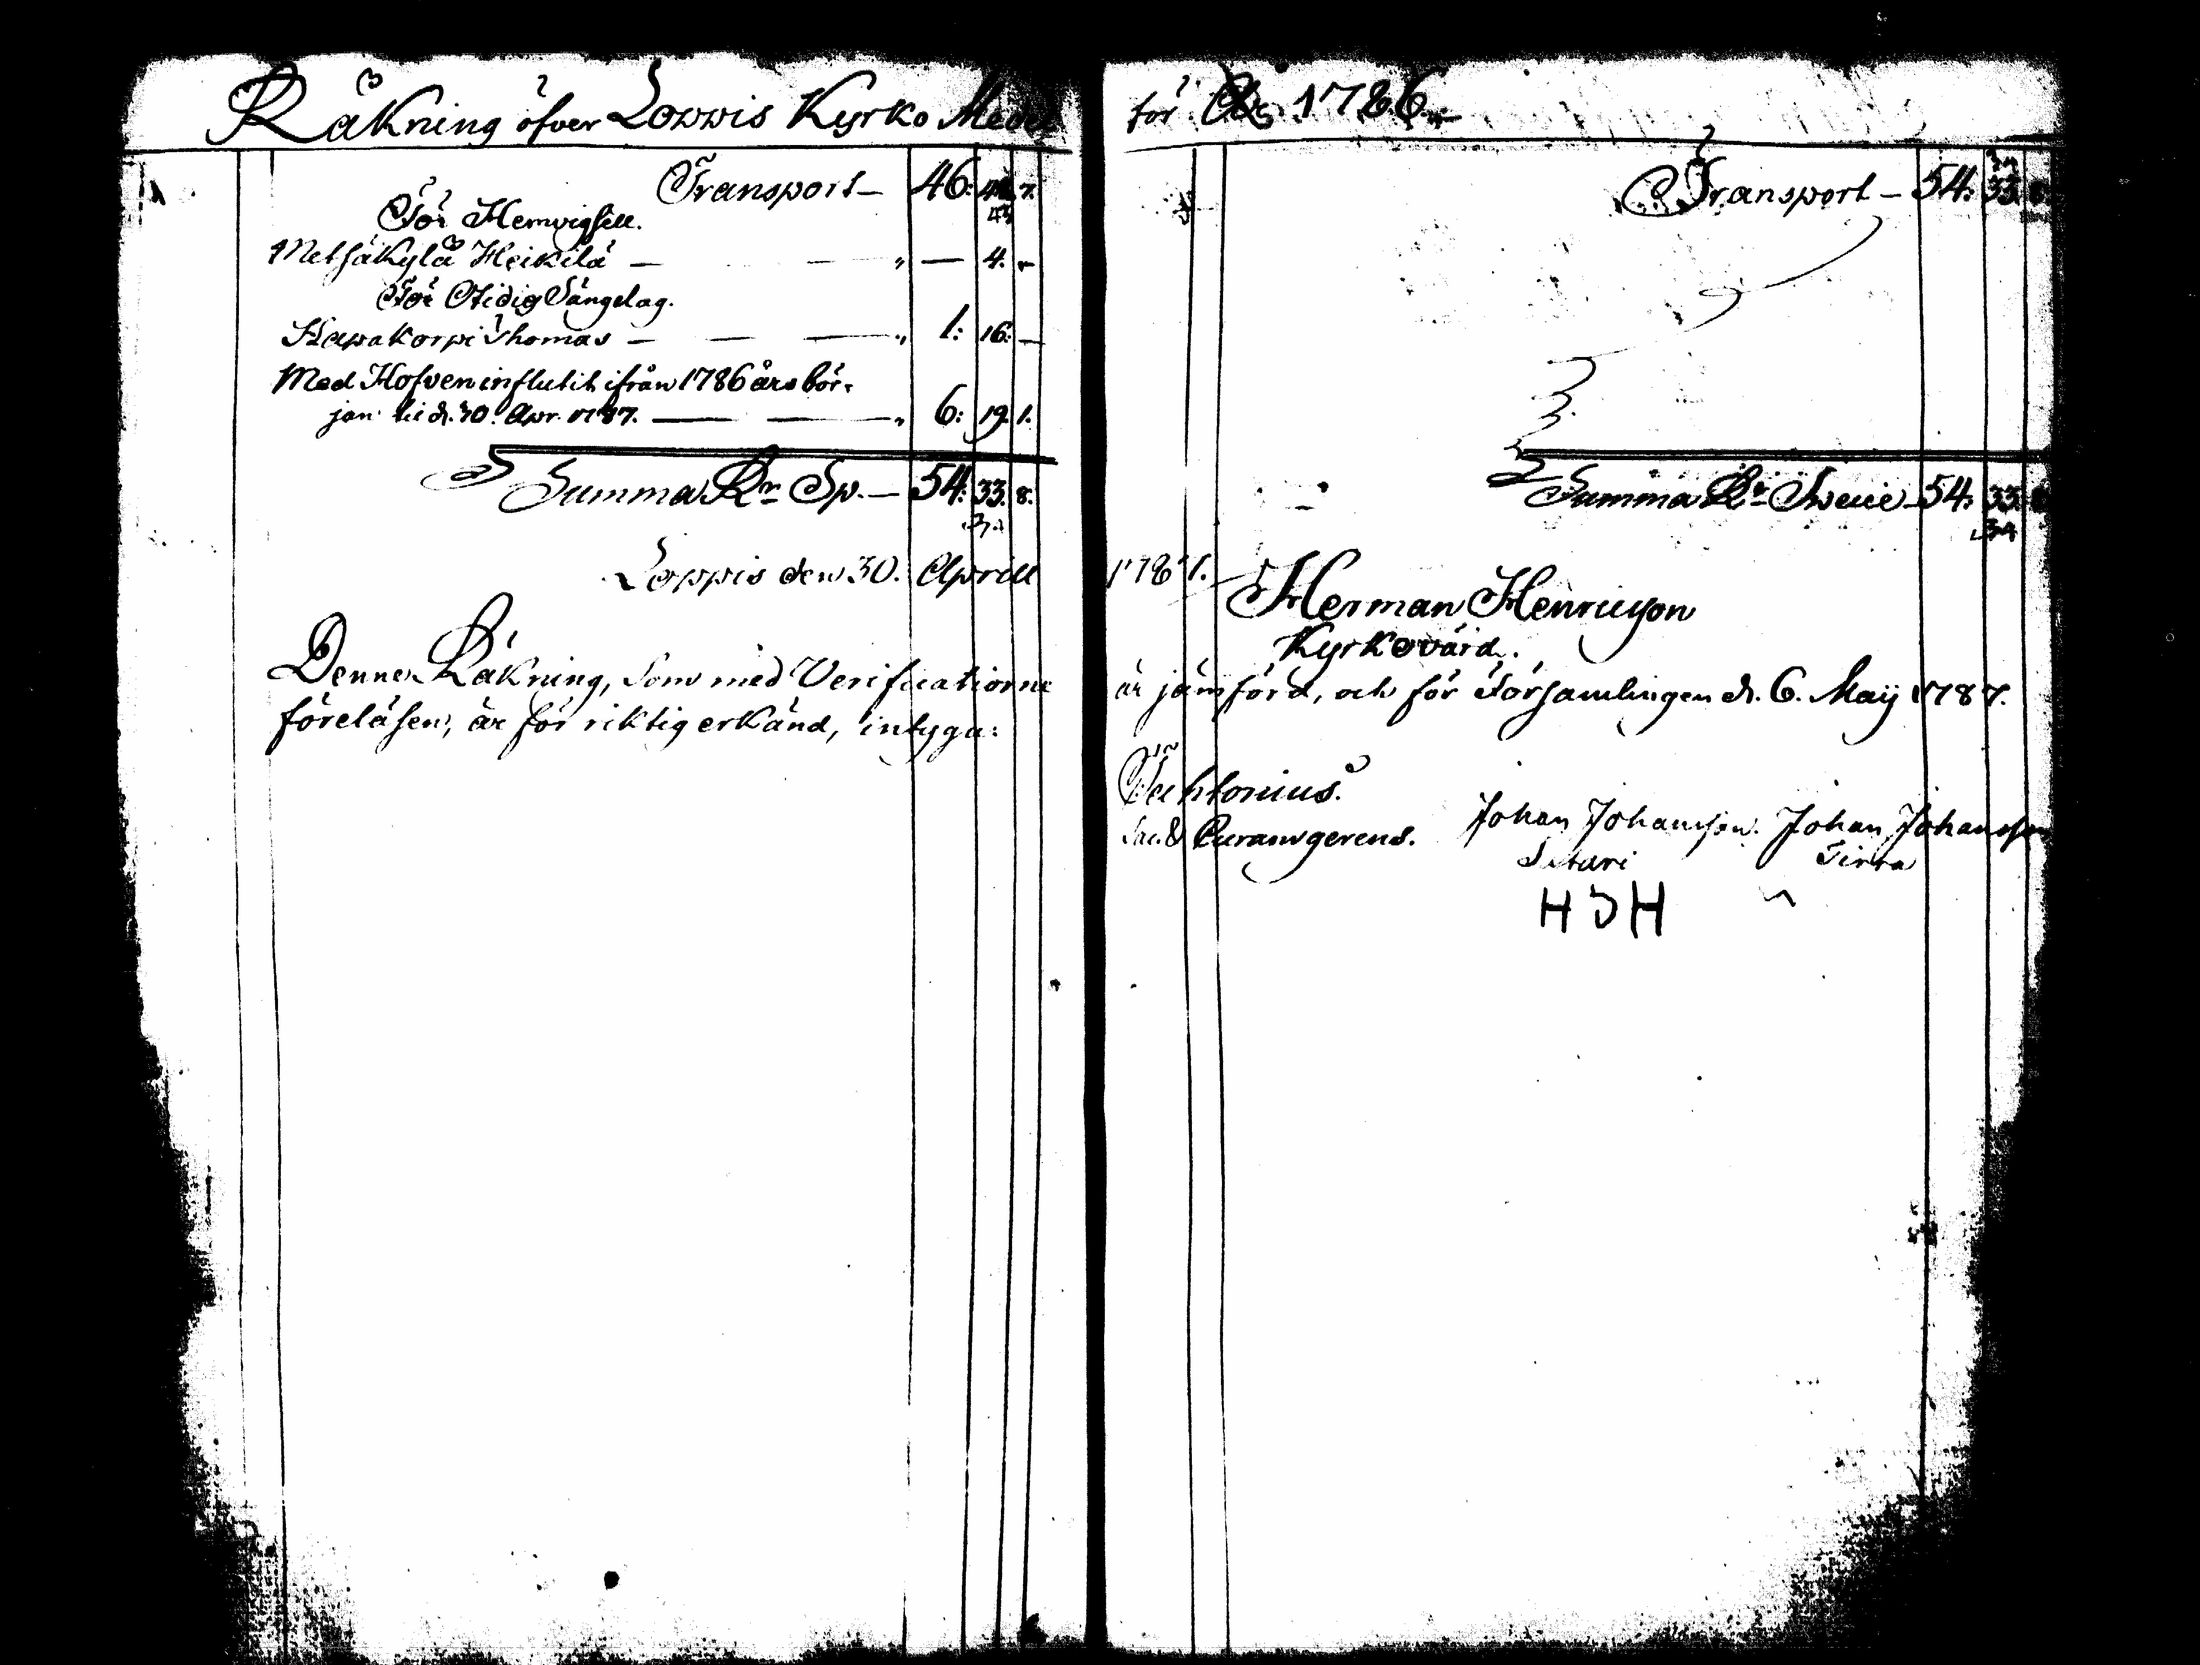 Räkning öfver Loppis Kyrko Medel
Transport — 46: 42. 7.
43
För Hemvigsell.
Metsäkylä Heikilä — — " — 4. —
För Otidig Sängelag.
Hapakorpi Thomas — — — " 1: 16: —
Med Hofven influtit ifrån 1786 års bör-
jan til d. 30. Apr. 1787. — — " 6: 19. 1.
Summa Rr. Sp. — 54: 33. 8.
34
Loppis den 30. Aprill
Denne Räkning, som med Verificatiorne
föreläsen, är för riktig erkänd, intyga:
för År 1786.
34
Transport — 54: 33. 8.
Summa Rr. Specie — 54: 33. 8
34
1787.
Herman Henricsson
Kyrkovärd.
är jämförd, och för Församlingen d. 6. Maij 1787.
Tuhlonius.
Sac. & Curam gerens.
Johan Johansson. Johan Johansson
Sutari Pirra
H J H